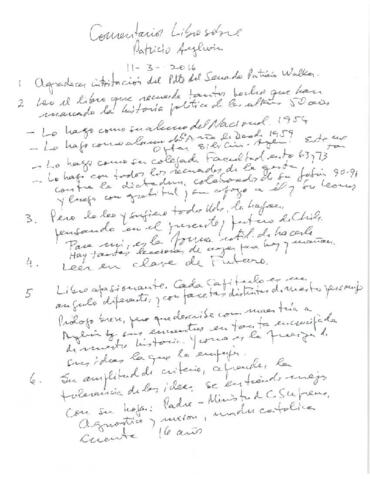 Comentarios Libro sobre
Patricio Aylwin
11-3-2016
1 Agradecer invitación del Pdte del Senado Patricio Walker.
2 Leo el libro que recuerda tantos hechos que han
marcado la historia política de los últimos 50 años
- Lo hago como su alumno del Nacional 1954
- Lo hago como alumno de 1er Año de Derecho 1959
- Lo hago como su colega de Facultad entre 63, 73
- Lo hago con todos los recuerdos de la
contra la dictadura, colaborador de su gobierno 90-94
y luego con gratitud, su apoyo a él y su
3. Pero lo leo y sugiero todos Uds. lo hagan,
pensando en el presente y futuro de Chile.
Para mí, es la forma de hacerlo
Hay tantas lecciones para hoy y mañana.
4. Leer en clave de Futuro.
5 Libro apasionante. Cada Capítulo es un
ángulo diferente, y con facetas distintas de nuestro personaje
Prólogo breve, pero que describe con maestría a
Aylwin y sus encuentros en tanta encrucijada
de nuestra historia. Y como es la fuerza de
sus ideas la que lo empuja.
6. Su amplitud de criterio, aprende, la
tolerancia de las ideas, se entiende mejor
con su hogar: Padre - Ministro C. Suprema,
Agnóstico y masón, madre católica
16 años